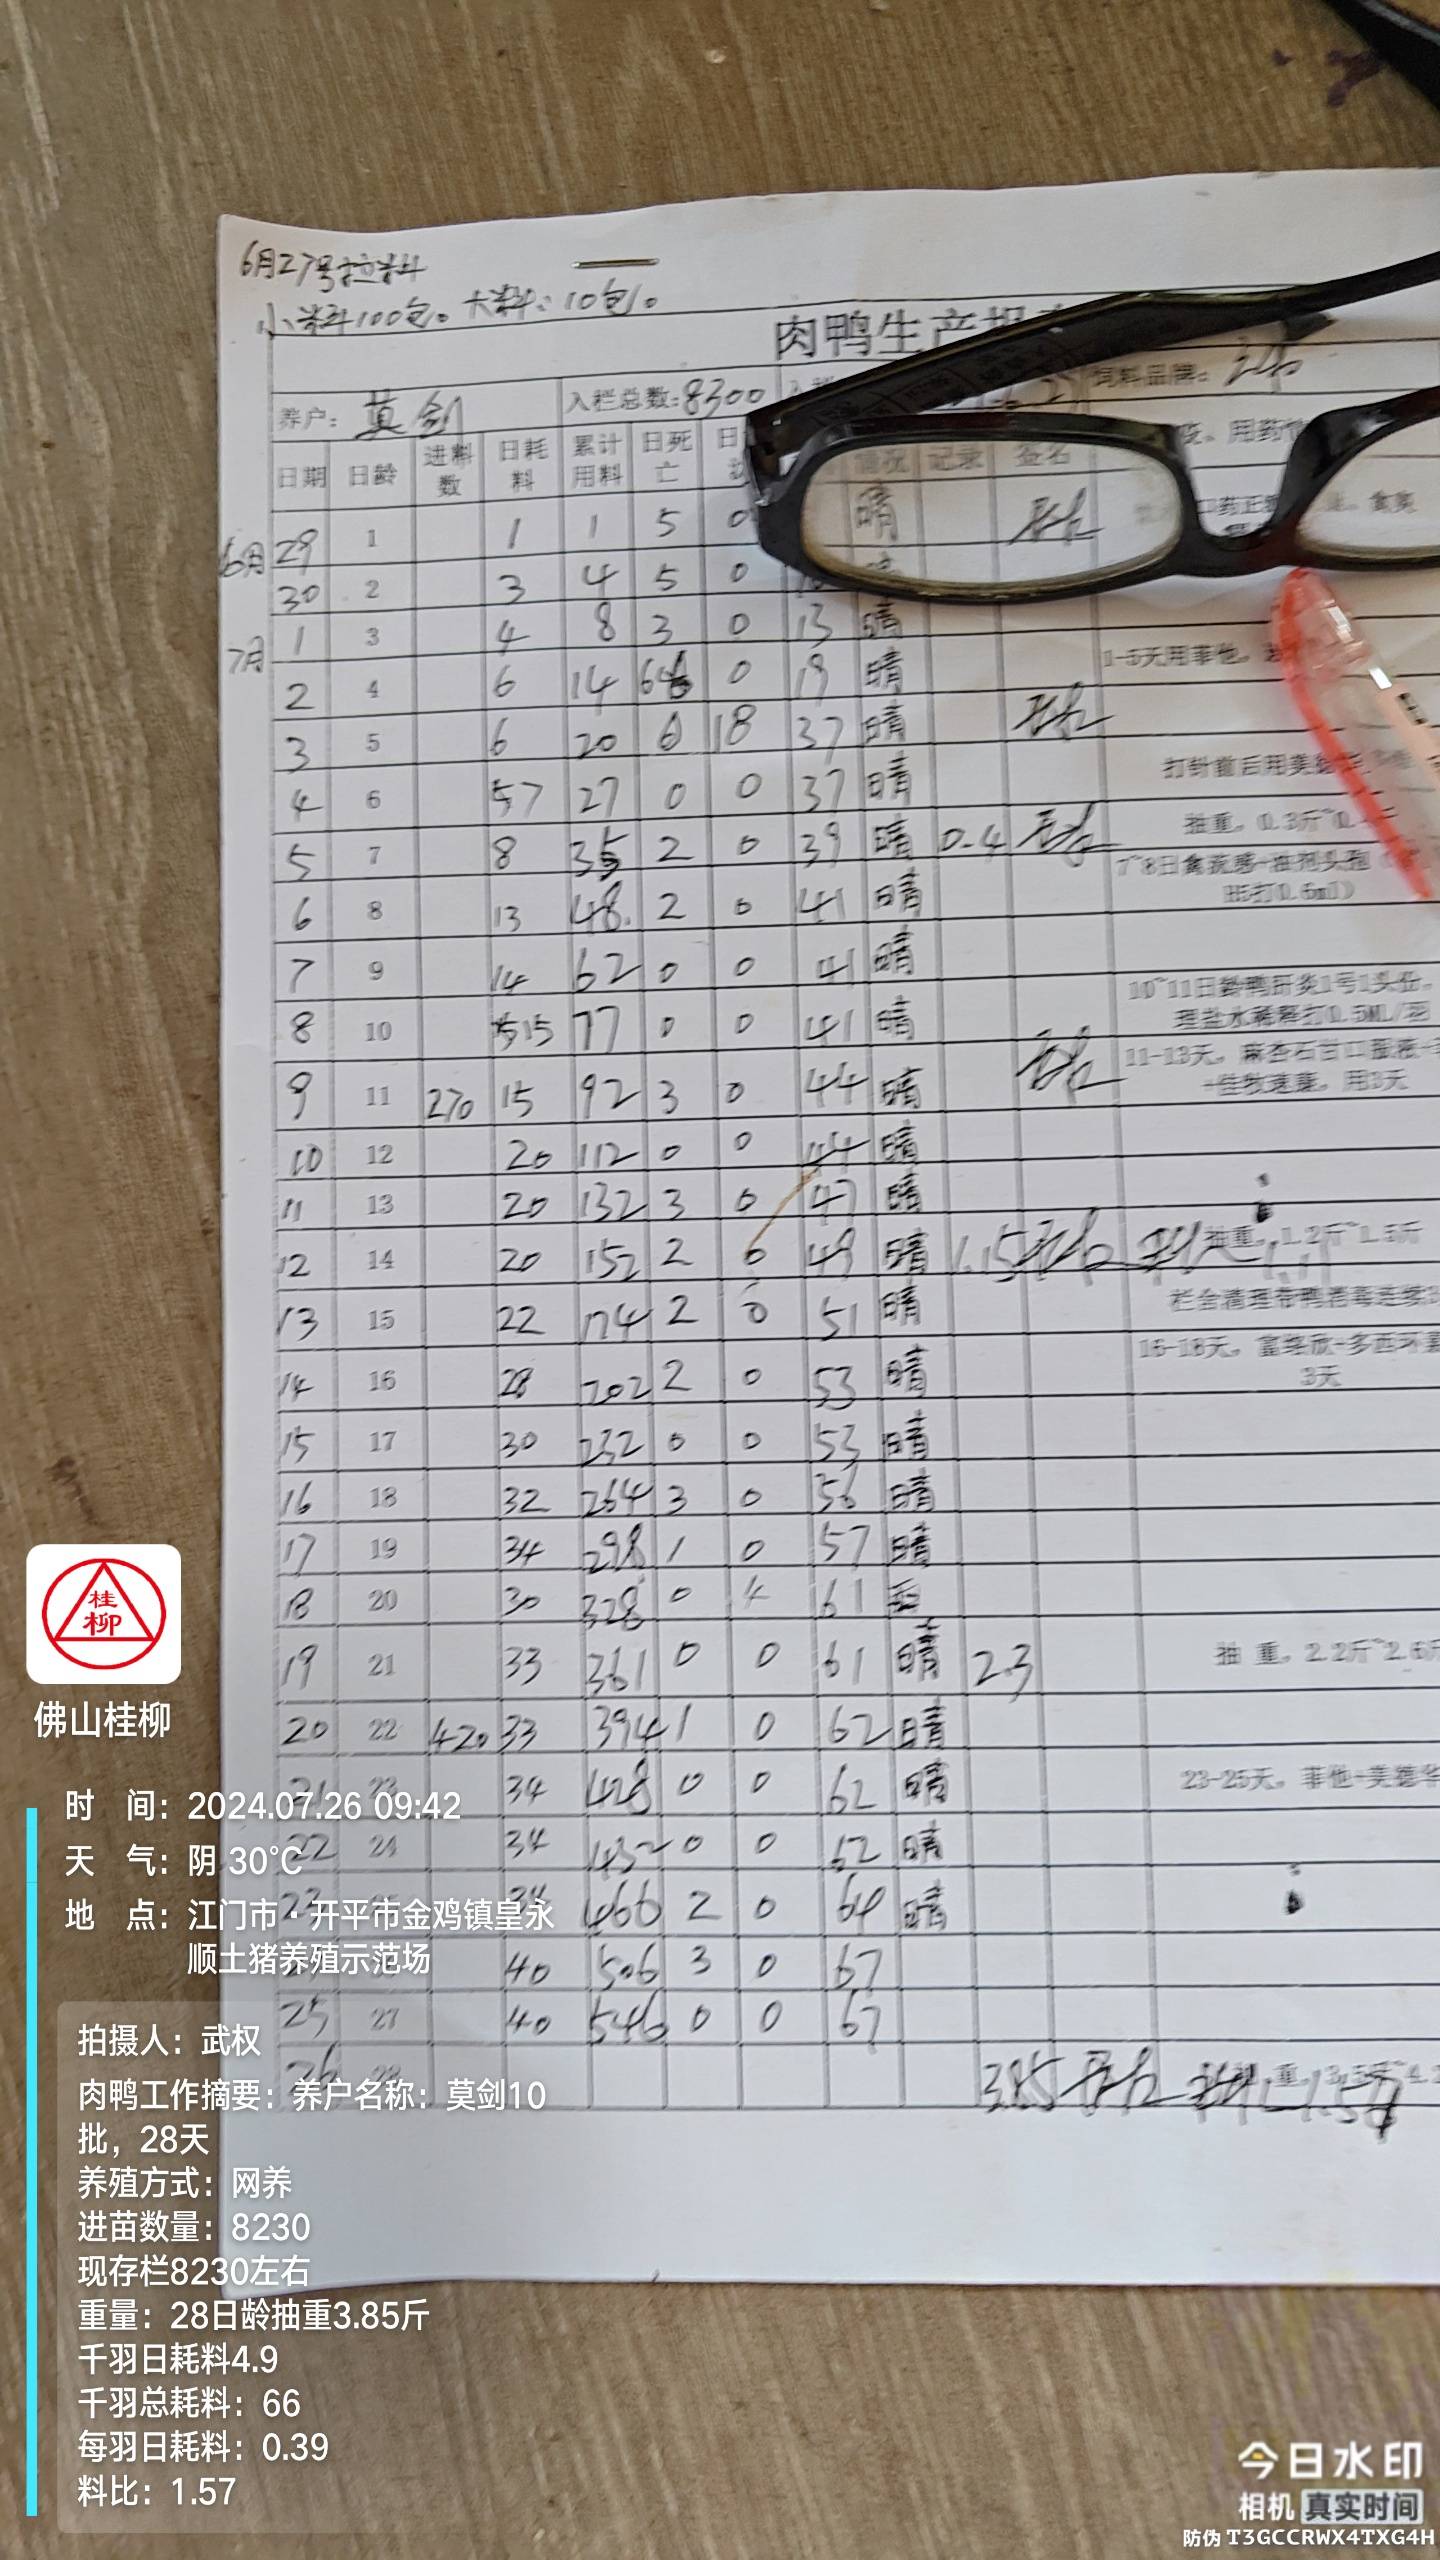 6月27号拉料
小料100包。大料:10包。
肉鸭生产报
养户: 莫剑 入栏总数:8300 饲料品牌:
日期 日龄 进料数 日耗料 累计用料 日死亡 日 情况 记录 签名 用药
6月 29 1 1 1 5 0 晴
30 2 3 4 5 0
7月 1 3 4 8 3 0 13 晴
2 4 6 14 6 0 19 晴 1-5天用菲他,
3 5 6 20 6 18 37 晴
4 6 7 27 0 0 37 晴 打针前后用
5 7 8 35 2 0 39 晴 0.4 抽重,0.3斤~0.
7~8日禽流感+
6 8 13 48. 2 0 41 晴 H5打0.6ml)
7 9 14 62 0 0 41 晴
8 10 15 77 0 0 41 晴 10~11日龄鸭肝炎1号1头份,
理盐水稀释打0.5ML/羽
9 11 270 15 92 3 0 44 晴 11-13天,麻杏石甘口服液+
用3天
10 12 20 112 0 0 44 晴
11 13 20 132 3 0 47 晴
12 14 20 152 2 0 49 晴 1.15 抽重,1.2斤~1.5斤
13 15 22 174 2 0 51 晴 栏舍清理带鸭消毒连续3
14 16 28 202 2 0 53 晴 16-18天,富络欣+多西环素
3天
15 17 30 232 0 0 53 晴
16 18 32 264 3 0 56 晴
17 19 34 298 1 0 57 晴
18 20 30 328 0 4 61
19 21 33 361 0 0 61 晴 2.3 抽 重,2.2斤~2.6斤
20 22 420 33 394 1 0 62 晴
21 23 34 428 0 0 62 晴 23-25天,菲他+美德华
22 24 34 432 0 0 62 晴
23 34 466 2 0 64 晴
40 506 3 0 67
25 27 40 546 0 0 67
26 28 3.85 重,3.5斤~4.
桂柳
佛山桂柳
时 间:2024.07.26 09:42
天 气:阴 30℃
地 点:江门市·开平市金鸡镇皇永
顺土猪养殖示范场
拍摄人:武权
肉鸭工作摘要:养户名称:莫剑10
批,28天
养殖方式:网养
进苗数量:8230
现存栏8230左右
重量:28日龄抽重3.85斤
千羽日耗料4.9
千羽总耗料:66
每羽日耗料:0.39
料比:1.57
今日水印
相机 真实时间
防伪 T3GCCRWX4TXG4H